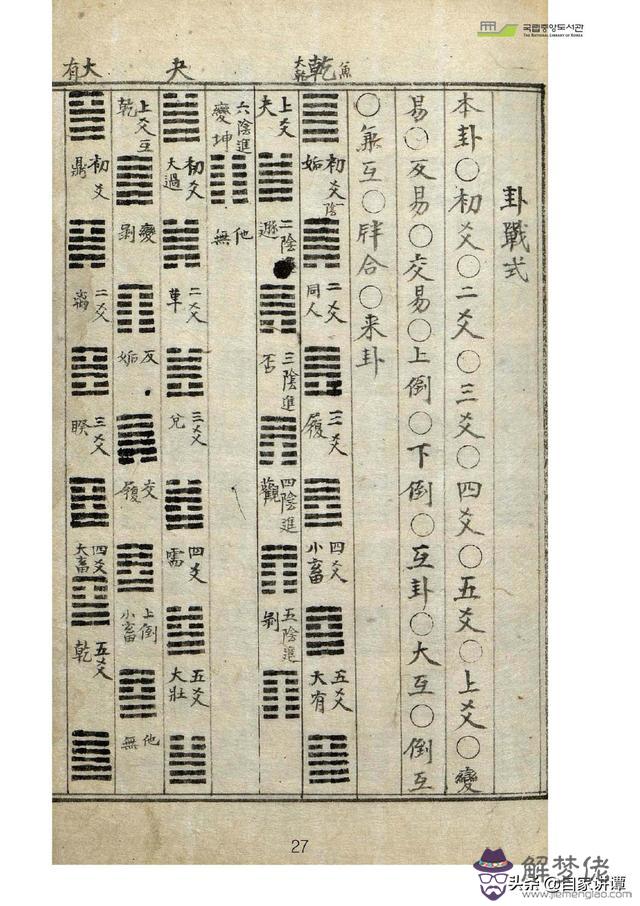 국립중앙도서관
THE NATIONAL LIBRARY OF KOREA
乾
夬
大有
卦戰式
本卦○初爻○二爻○三爻○四爻○五爻○上爻○變
易○反易○交易○上倒○下倒○互卦○大互○倒互
○兼互○牉合○来卦
初爻 姤 二爻 同人 三爻 履 四爻 小畜 五爻 大有
上爻 夬 二陰進 遯 三陰進 否 四陰進 觀 五陰進 剝
六陰進 變坤 他無
初爻 大過 二爻 革 三爻 兌 四爻 需 五爻 大壯
上爻互 乾 變 剝 反 姤 交 履 上倒 小畜 他無
初爻 鼎 二爻 離 三爻 睽 四爻 大畜 五爻 乾
27
解梦佬
头条@自家讲谭
www.jiemenglao.com